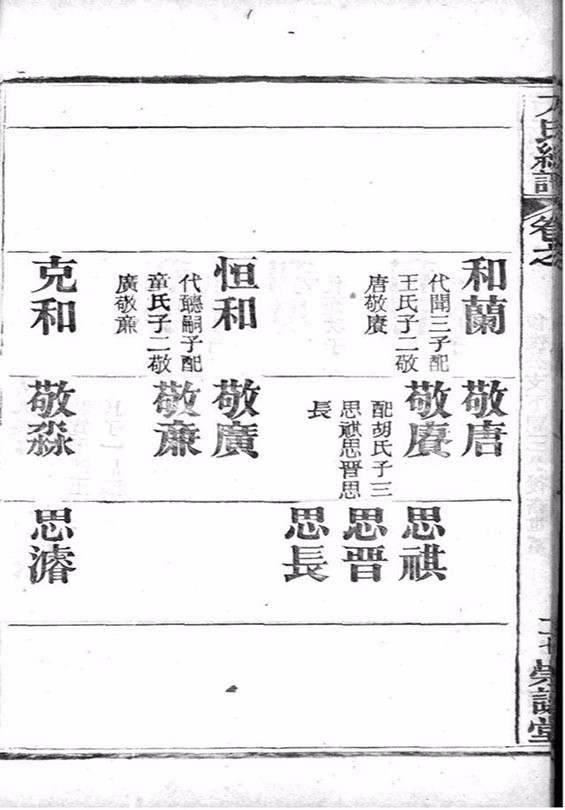 氏
卷之
二十
堂
和蘭
代聞三子配
王氏子二敬
唐敬賡
恒和
代聽嗣子配
童氏子二敬
廣敬亷
克和
敬唐
敬賡
配胡氏子三
思祺思晉思
長
敬廣
敬亷
敬淼
思祺
思晉
思長
思濬